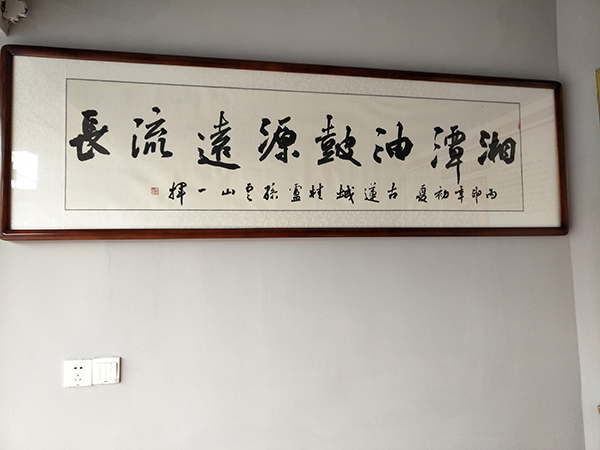 湘潭油鼓源遠流長
年初夏古蓮城桂盧孫雲山一揮